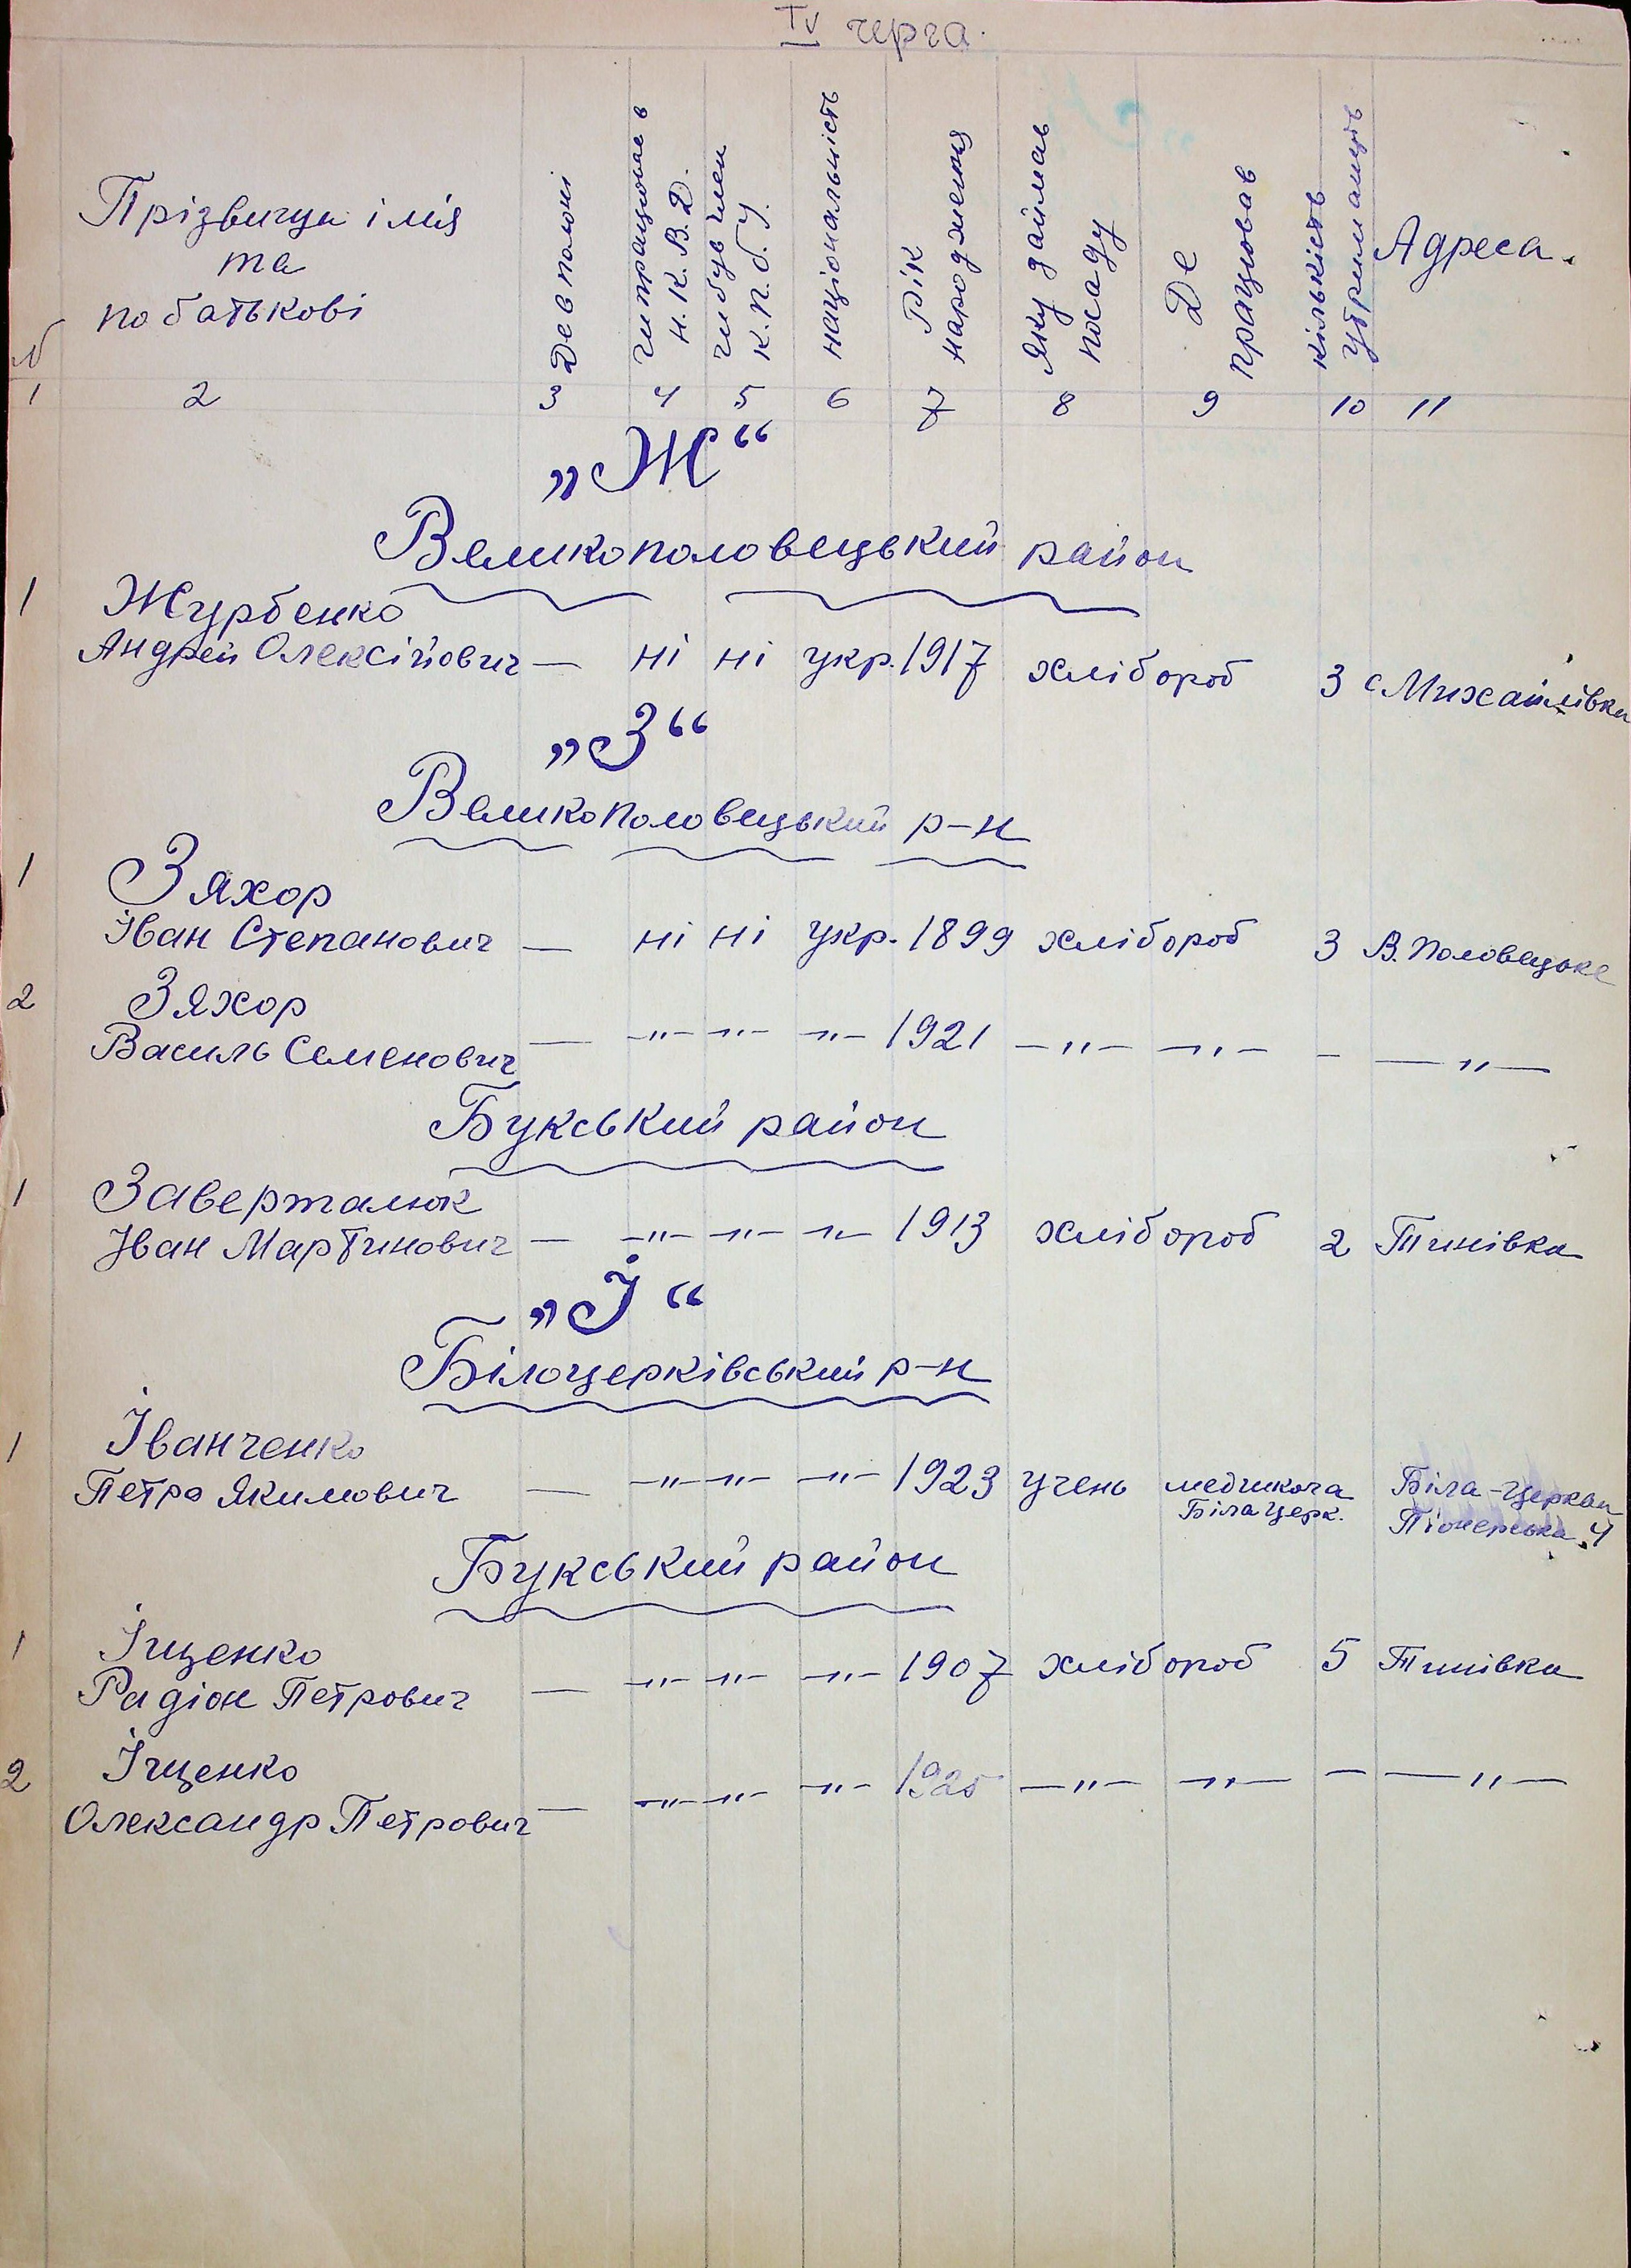 IV черга.
№
Прізвищи і мія
та
по батькові
Де в полоні
чи працював в
Н.К.В.Д.
чи був член
К.П.б.У.
національність
Рік
народження
Яку займав
посаду
Де
працював
кількість
утриманців
Адреса.
1 2 3 4 5 6 7 8 9 10 11
„Ж“
Великополовецький район
1 Журбенко
Андрей Олексійович — ні ні укр. 1917 хлібороб 3 с Михайлівка
„З“
Великополовецький р-н
1 Зяхор
Іван Степанович — ні ні укр. 1899 хлібороб 3 В. Половецьке
2 Зяхор
Василь Семенович — -"- -"- -"- 1921 -"- -"- - —"—
Букський район
1 Заверталюк
Іван Мартинович — -"- -"- -"- 1913 хлібороб 2 Тинівка
„І“
Білоцерківський р-н
1 Іванченко
Петро Якимович — -"- -"- -"- 1923 учень медшкола Біла-Церква
Біла Церк. Піонерська 4
Букський район
1 Іщенко
Радіон Петрович — -"- -"- -"- 1907 хлібороб 5 Тинівка
2 Іщенко
Олександр Петрович — -"- -"- -"- 1925 -"- -"- - —"—